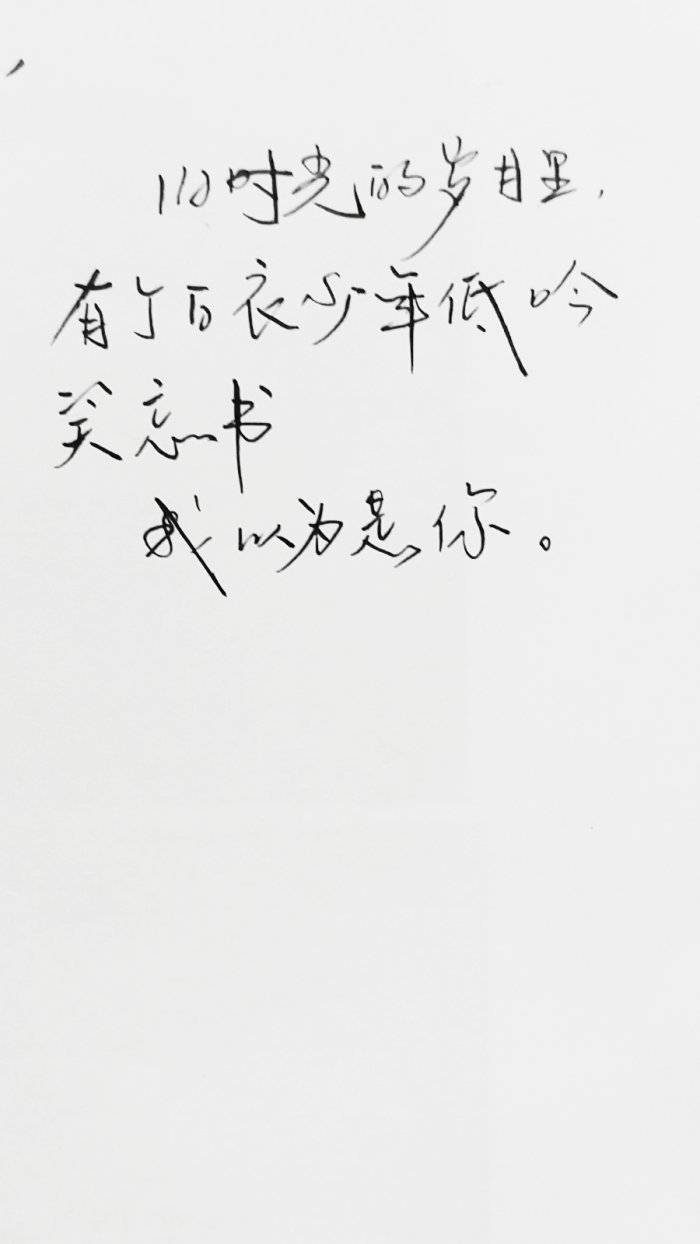 旧时光的岁月里,
有个白衣少年低吟
关忘书
我以为是你。